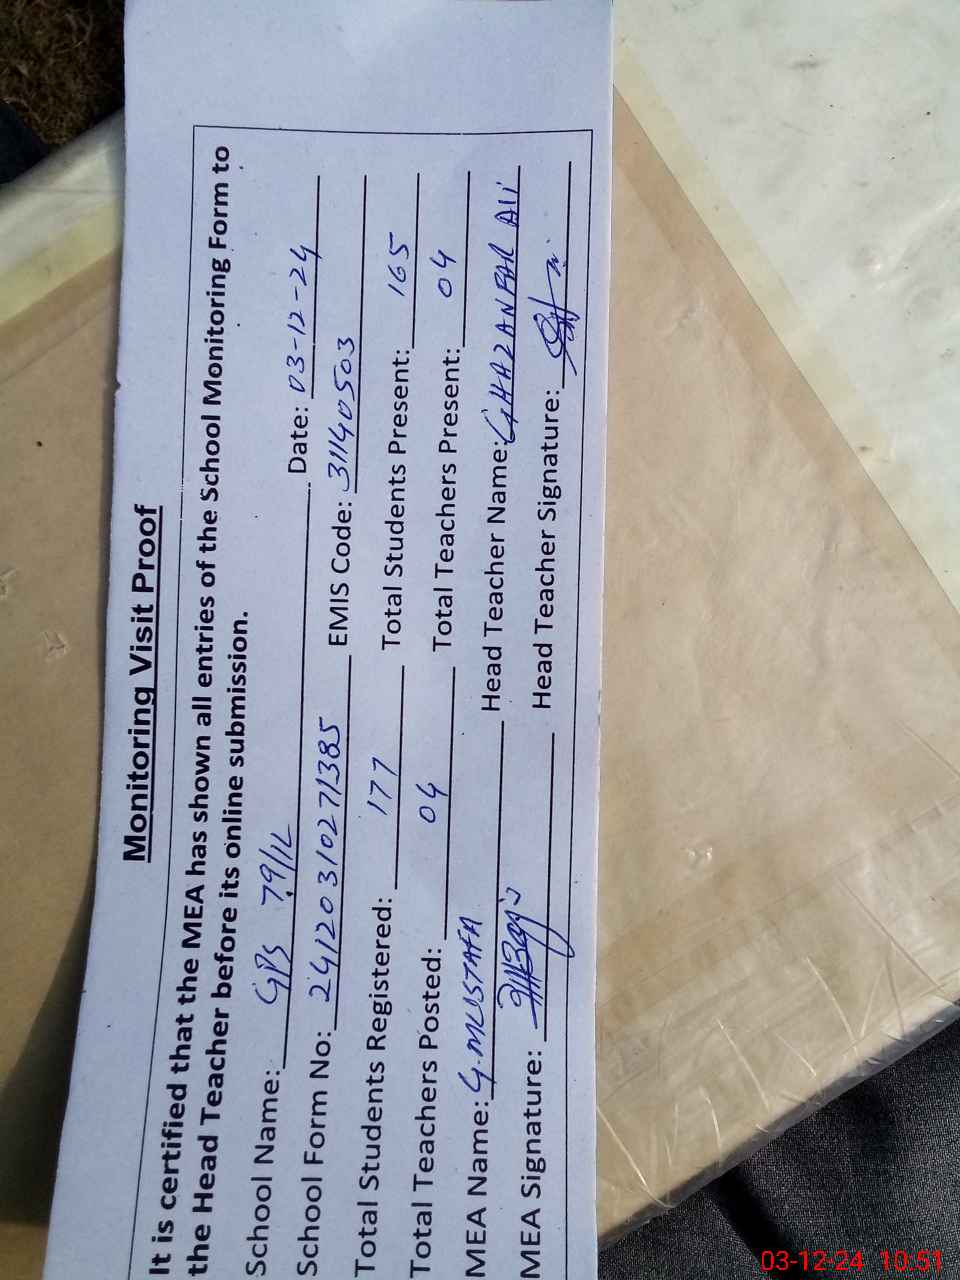 Monitoring Visit Proof
It is certified that the MEA has shown all entries of the School Monitoring Form to
the Head Teacher before its online submission.
School Name: GPS 79/1L Date: 03-12-24
School Form No: 24120310271385 EMIS Code: 31140503
Total Students Registered: 177 Total Students Present: 165
Total Teachers Posted: 04 Total Teachers Present: 04
MEA Name: G.MUSTAFA Head Teacher Name: GHAZANFAR Ali
MEA Signature: Head Teacher Signature:
03-12-24 10:51